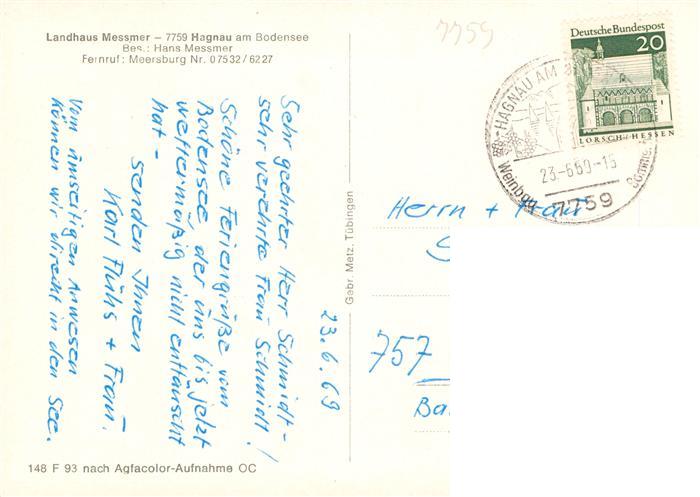 Landhaus Messmer – 7759 Hagnau am Bodensee
Bes.: Hans Messmer
Fernruf: Meersburg Nr. 07532/6227
7759
Deutsche Bundespost
20
LORSCH/HESSEN
HAGNAU AM
23-6.69-15
Weinbau
7759
23.6.69
Sehr geehrter Herr Schmidt - /
sehr verehrte Frau Schmidt!
Schöne Feriengrüße vom
Bodensee, der uns bis jetzt
wettermäßig nicht enttäuscht
hat -
senden Ihnen
Karl Flühs + Frau.
Vom umseitigen Anwesen
können wir direkt in den See.
Gebr. Metz, Tübingen
Herrn + Frau
757
Ba
148 F 93 nach Agfacolor-Aufnahme OC